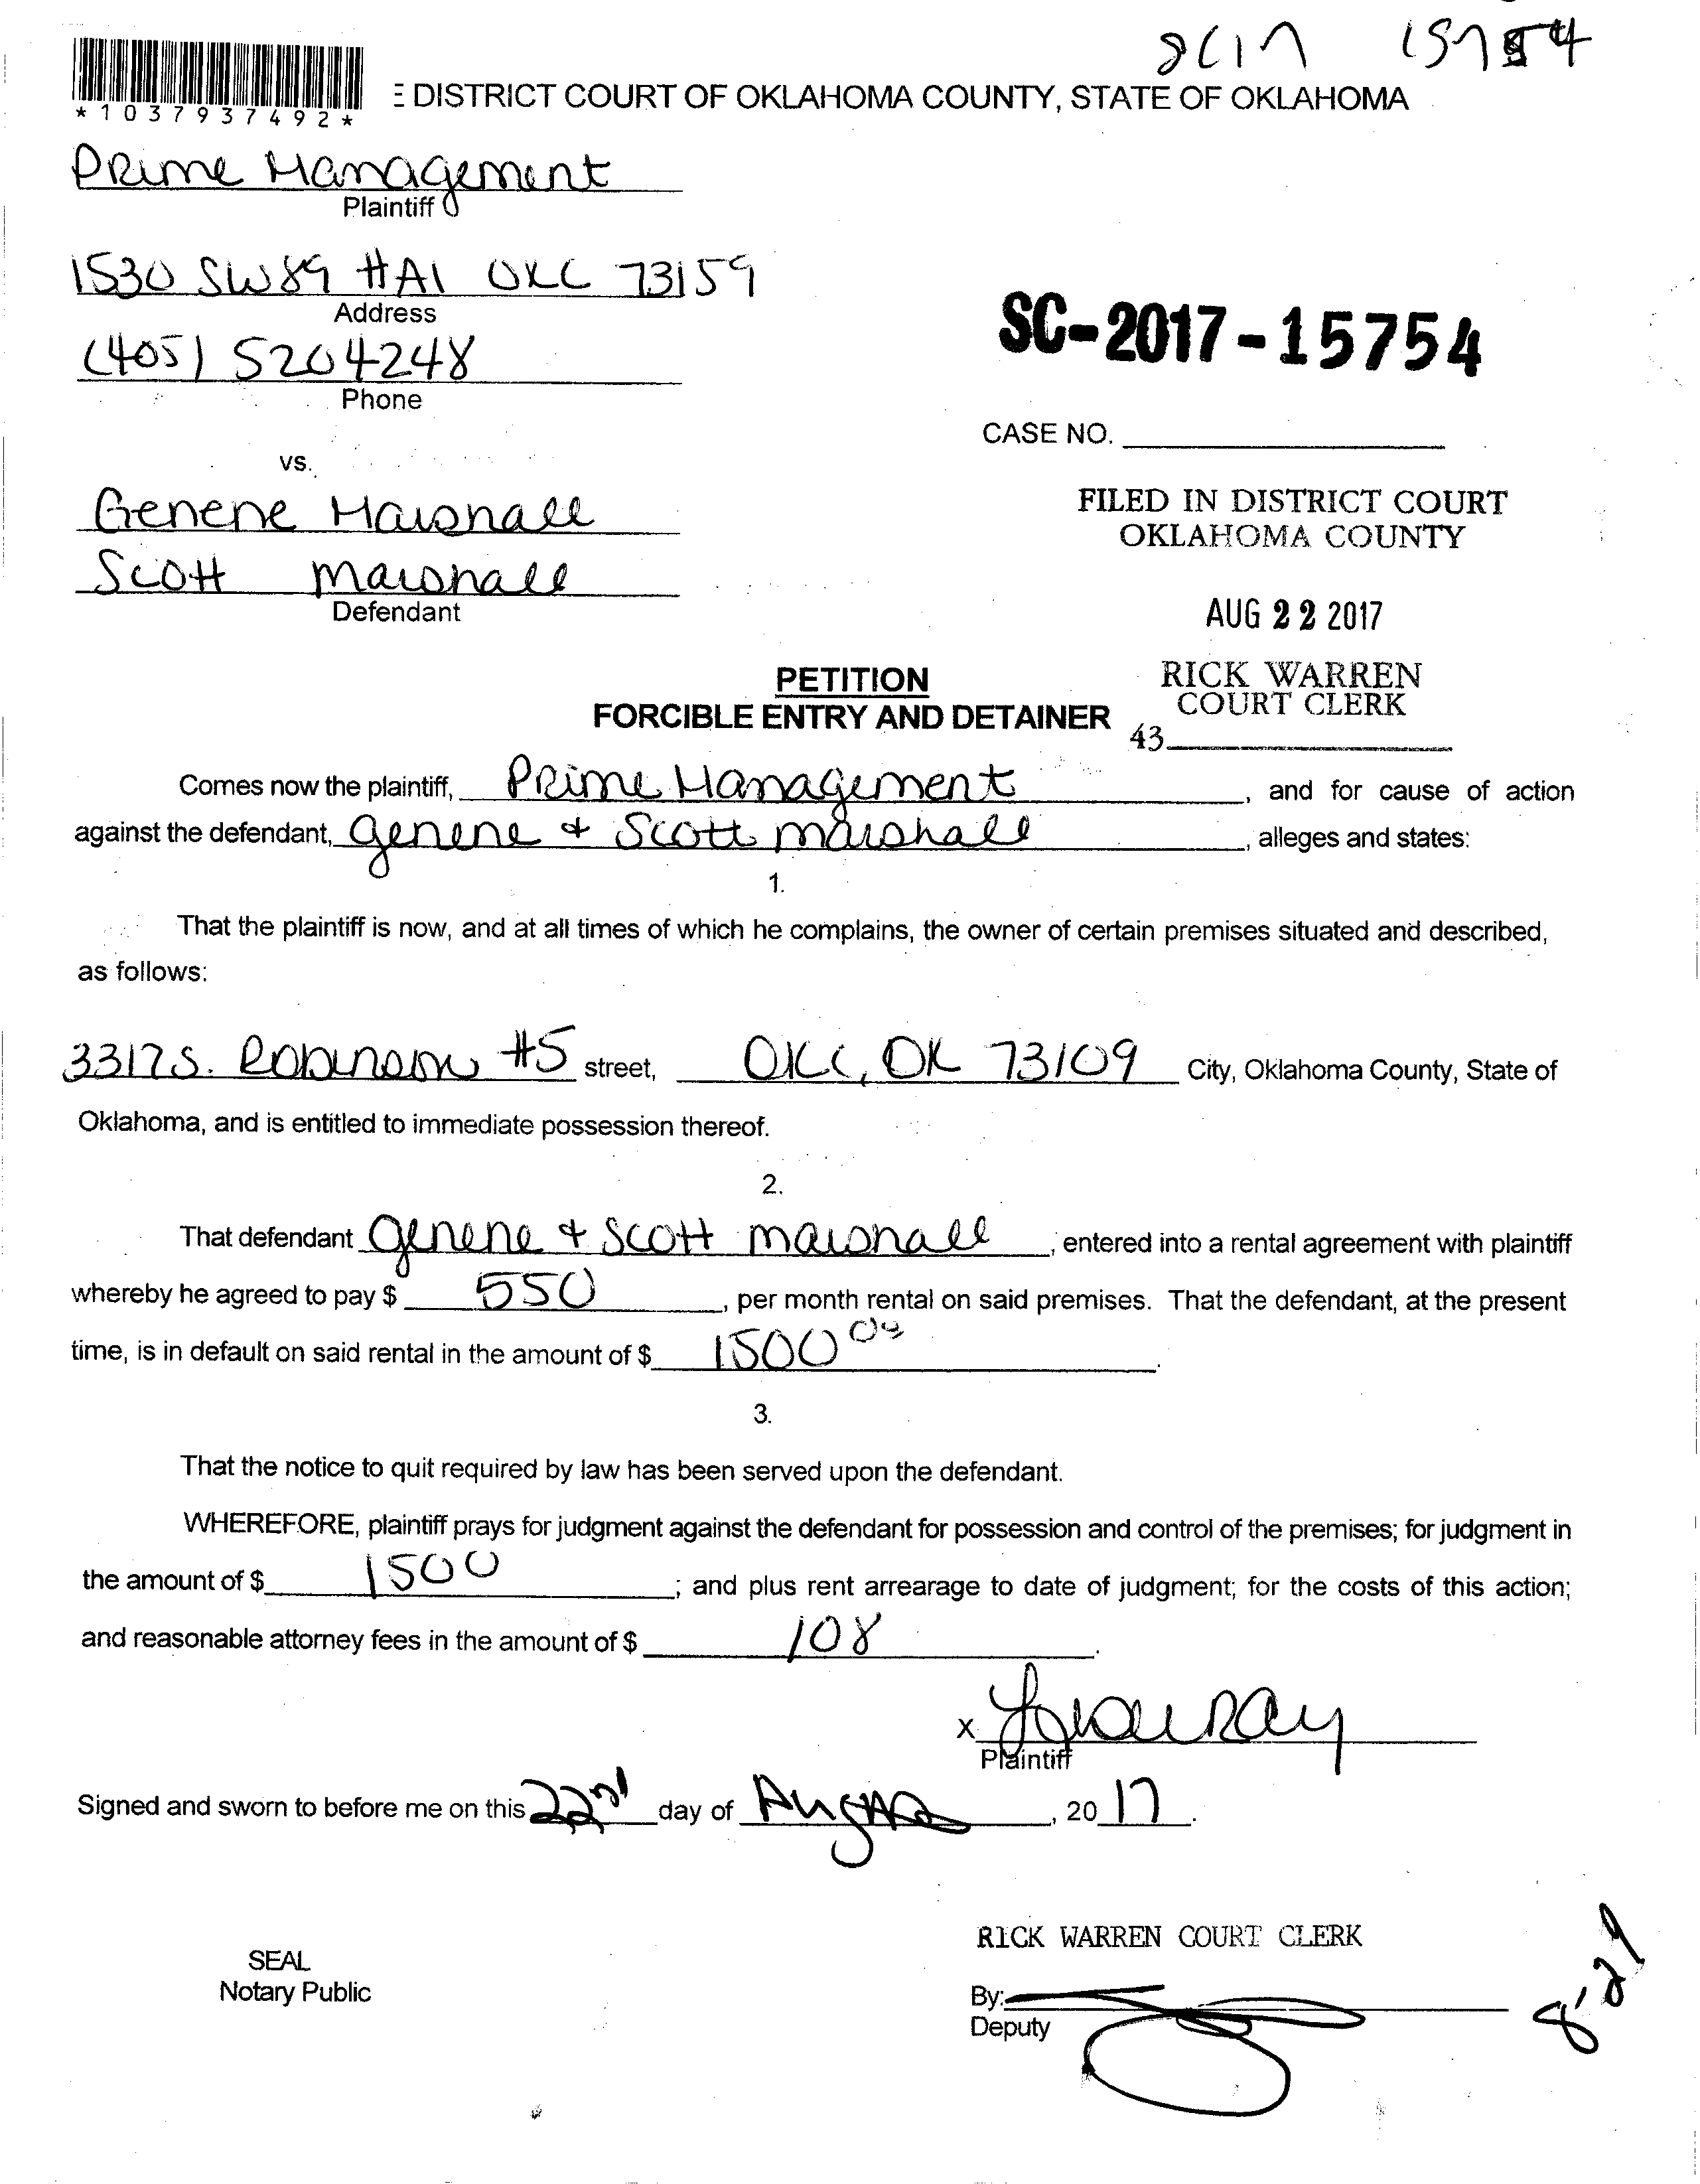 2017 15754
*1037937492*
E DISTRICT COURT OF OKLAHOMA COUNTY, STATE OF OKLAHOMA
Prime Management
Plaintiff
1530 SW 89 #A1 OKC 73159
Address
(405) 5204248
Phone
SC-2017-15754
CASE NO.
vs.
Genene Marshall
Scott Marshall
Defendant
FILED IN DISTRICT COURT
OKLAHOMA COUNTY
AUG 22 2017
RICK WARREN
COURT CLERK
43
PETITION
FORCIBLE ENTRY AND DETAINER
Comes now the plaintiff, Prime Management, and for cause of action
against the defendant, Genene + Scott Marshall, alleges and states:
1.
That the plaintiff is now, and at all times of which he complains, the owner of certain premises situated and described,
as follows:
3317 S. Robinson #5 street, OKC, OK 73109 City, Oklahoma County, State of
Oklahoma, and is entitled to immediate possession thereof.
2.
That defendant Genene + Scott Marshall, entered into a rental agreement with plaintiff
whereby he agreed to pay $ 550, per month rental on said premises. That the defendant, at the present
time, is in default on said rental in the amount of $ 1500 00.
3.
That the notice to quit required by law has been served upon the defendant.
WHEREFORE, plaintiff prays for judgment against the defendant for possession and control of the premises; for judgment in
the amount of $ 1500; and plus rent arrearage to date of judgment; for the costs of this action;
and reasonable attorney fees in the amount of $ 108.
X
Plaintiff
Signed and sworn to before me on this 22nd day of August, 2017.
RICK WARREN COURT CLERK
SEAL
Notary Public
By:
Deputy
8-29